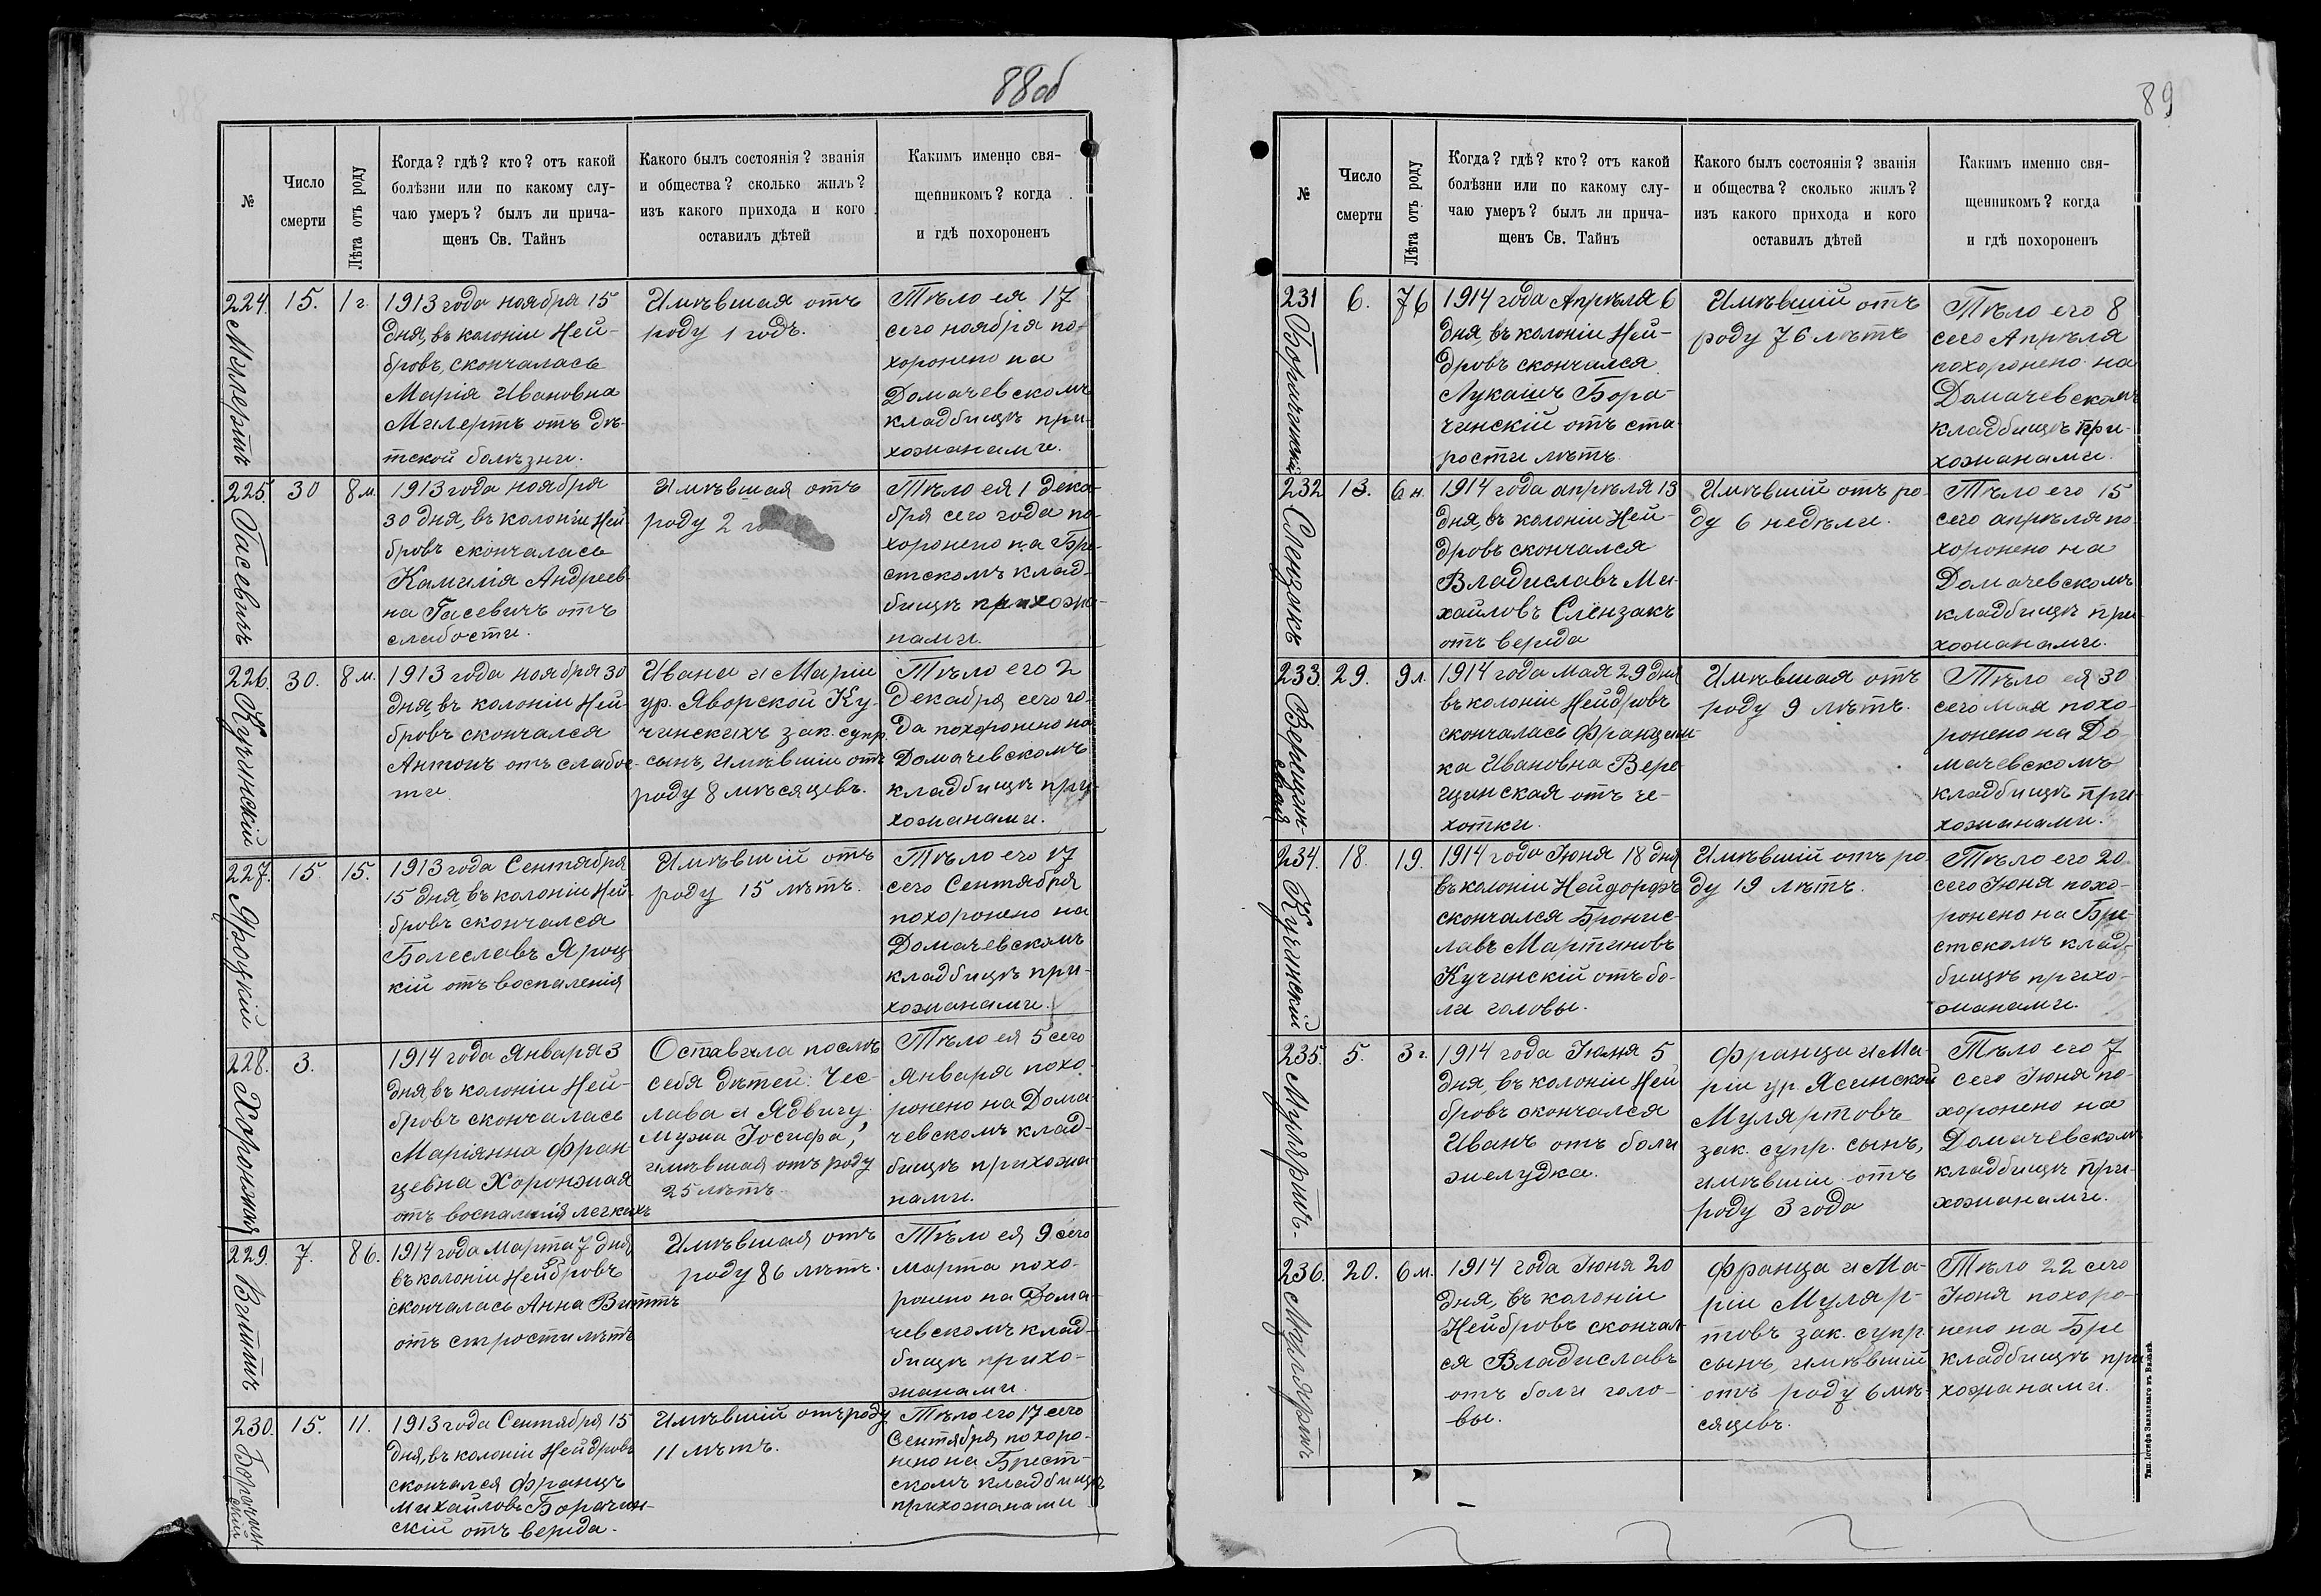 88об
№
Число
смерти
Лѣта отъ роду
Когда? гдѣ? кто? отъ какой
болѣзни или по какому слу-
чаю умеръ? былъ ли прича-
щенъ Св. Тайнъ
Какого былъ состоянія? званія
и общества? сколько жилъ?
изъ какого прихода и кого
оставилъ дѣтей
Какимъ именно свя-
щенникомъ? когда
и гдѣ похороненъ
224.
15.
1 г.
1913 года ноября 15
дня, въ колоніи Ней-
бровъ, скончалась
Марія Ивановна
Милертъ отъ дѣ-
тской болѣзни.
Имѣвшая отъ
роду 1 годъ.
Тѣло ея 17
сего ноября по-
хоронено на
Домачевскомъ
кладбищѣ при-
хожанами.
225.
Гасевичъ
30
8 м.
1913 года ноября
30 дня, въ колоніи Ней
бровъ скончалась
Камилія Андреев-
на Гасевичъ отъ
слабости.
Имѣвшая отъ
роду 2 го
Тѣло ея 1 дека-
бря сего года по-
хоронено на Бре-
стскомъ клад-
бищѣ прихожа-
нами.
226.
Кучинскій
30.
8 м.
1913 года ноября 30
дня, въ колоніи Ней-
бровъ скончался
Антонъ отъ слабос-
ти.
Ивана и Маріи
ур. Яворской Ку-
чинскихъ зак. супр.
сынъ, имѣвшій отъ
роду 8 мѣсяцевъ.
Тѣло его 2
Декабря сего го-
да похоронено на
Домачевскомъ
кладбищѣ при-
хожанами.
227.
Яроцкій
15
15.
1913 года Сентября
15 дня, въ колоніи Ней-
бровъ скончался
Болеславъ Яроц-
кій отъ воспаленія
Имѣвшій отъ
роду 15 лѣтъ.
Тѣло его 17
сего Сентября
похоронено на
Домачевскомъ
кладбищѣ при-
хожанами.
228.
Хоронжая
3.
1914 года Января 3
дня, въ колоніи Ней-
бровъ скончалась
Маріянна Фран
цевна Хоронжая
отъ воспаленія легкихъ
Оставила послѣ
себя дѣтей: Чес-
лава и Ядвигу
мужа Іосифа,
имѣвшая отъ роду
25 лѣтъ.
Тѣло ея 5 сего
Января похо
ронено на Дома-
чевскомъ клад-
бищѣ прихожа-
нами.
229.
Виттъ
7.
86.
1914 года Марта 7 дня
въ колоніи Нейбровъ
скончалась Анна Виттъ
отъ старости лѣтъ
Имѣвшая отъ
роду 86 лѣтъ.
Тѣло ея 9 сего
Марта похо-
ронено на Дома-
чевскомъ клад-
бищѣ прихо-
жанами.
230.
Борачин
скій
15.
11.
1913 года Сентября 15
дня, въ колоніи Нейдровъ
скончался Францъ
Михайловъ Борачин-
скій отъ вереда.
Имѣвшій отъ роду
11 лѣтъ.
Тѣло его 17 сего
Сентября похоро-
нено на Брест-
скомъ кладбищѣ
прихожанами
89
№
Число
смерти
Лѣта отъ роду
Когда? гдѣ? кто? отъ какой
болѣзни или по какому слу-
чаю умеръ? былъ ли прича-
щенъ Св. Тайнъ
Какого былъ состоянія? званія
и общества? сколько жилъ?
изъ какого прихода и кого
оставилъ дѣтей
Какимъ именно свя-
щенникомъ? когда
и гдѣ похороненъ
231
Борачинскій
6.
76
1914 года Апрѣля 6
дня, въ колоніи Ней-
дровъ скончался
Лукашъ Бора-
чинскій отъ ста-
рости лѣтъ.
Имѣвшій отъ
роду 76 лѣтъ
Тѣло его 8
сего Апрѣля
похоронено на
Домачевскомъ
кладбищѣ при-
хожанами.
232
Слензакъ
13.
6 н.
1914 года апрѣля 13
дня, въ колоніи Ней-
дровъ скончался
Владиславъ Ми-
хайловъ Слензакъ
отъ вереда
Имѣвшій отъ ро-
ду 6 недѣли.
Тѣло его 15
сего апрѣля по-
хоронено на
Домачевскомъ
кладбищѣ при-
хожанами.
233.
Верещин-
ская
29.
9 л.
1914 года мая 29 дня
въ колоніи Нейдровъ
скончалась Францин-
ка Ивановна Вере-
щинская отъ че-
хотки.
Имѣвшая отъ
роду 9 лѣтъ.
Тѣло ея 30
сего Мая похо-
ронено на До-
мачевскомъ
кладбищѣ при-
хожанами.
234.
Кучинскій
18.
19.
1914 года Іюня 18 дня
въ колоніи Нейдорфъ
скончался Бронис-
лавъ Мартиновъ
Кучинскій отъ бо-
ли головы.
Имѣвшій отъ ро-
ду 19 лѣтъ.
Тѣло его 20
сего Іюня похо-
ронено на Бре-
стскомъ клад-
бищѣ прихо-
жанами.
235.
Муляртъ-
5.
3 г.
1914 года Іюня 5
дня, въ колоніи Ней
бровъ скончался
Иванъ отъ боли
желудка.
Франца и Ма-
ріи ур Ясинской
Муляртовъ
зак. супр. сынъ,
имѣвшій отъ
роду 3 года
Тѣло его 7
сего Іюня по-
хоронено на
Домачевскомъ
кладбищѣ при-
хожанами.
236.
Мулляртъ
20.
6 м.
1914 года Іюня 20
дня, въ колоніи
Нейбровъ скончал-
ся Владиславъ
отъ боли голо-
вы.
Франца и Ма-
ріи Муляр-
товъ зак. супр.
сынъ, имѣвшій
отъ роду 6 мѣ-
сяцевъ.
Тѣло 22 сего
Іюня похоро-
нено на Бре
кладбищѣ при
хожанами.
Тип. Іосифа Завадзкаго въ Вильнѣ